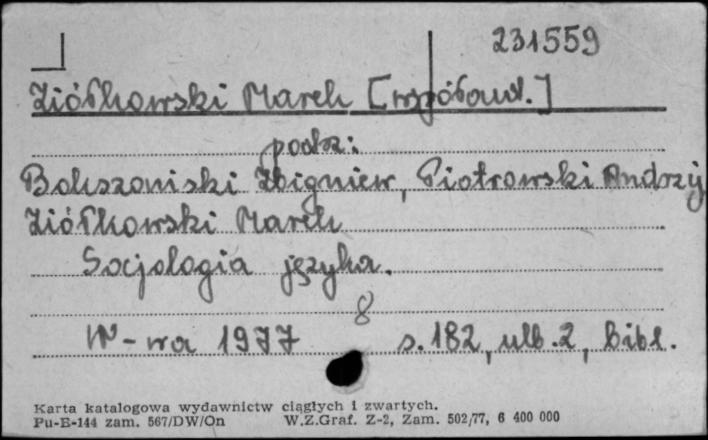 231559
Ziółkowski Marek [współaut.]
podz:
Bokszański Zbigniew, Piotrowski Andrzej
Ziółkowski Marek
Socjologia języka.
8
W-wa 1977 s. 182, ulb. 2, Bibl.
Karta katalogowa wydawnictw ciągłych i zwartych.
Pu-E-144 zam. 567/DW/On W.Z.Graf. Z-2, Zam. 502/77, 6 400 000